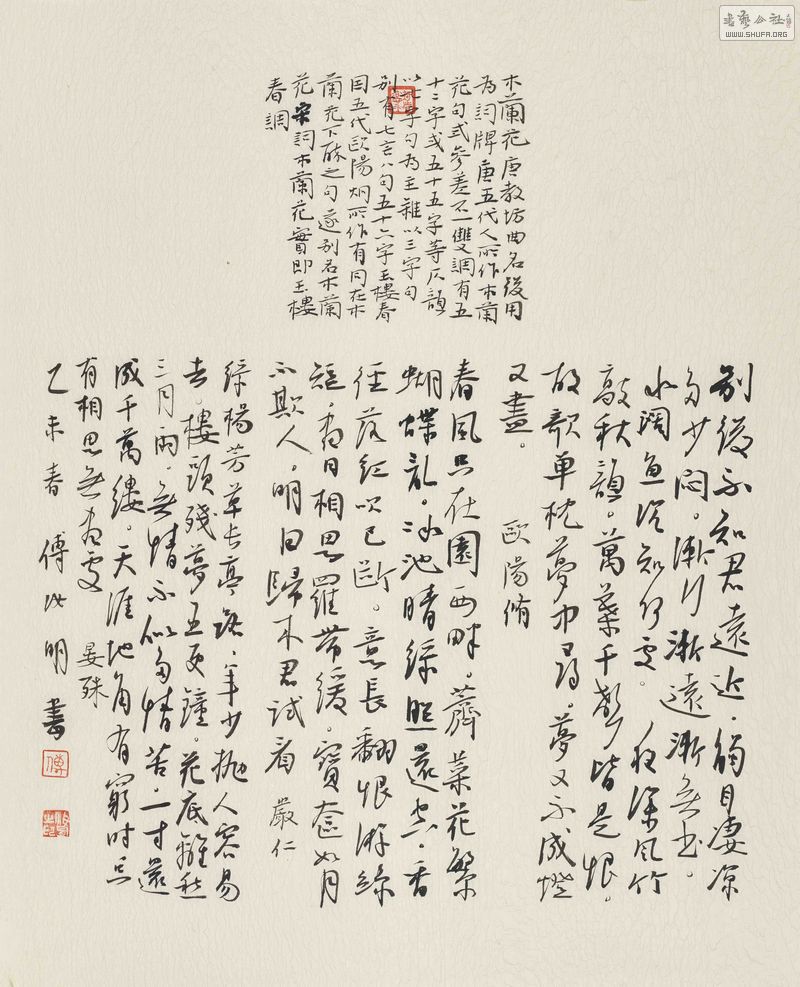 木蘭花唐教坊曲名後用
為詞牌唐五代人所作木蘭
花句式參差不一雙調有五
十二字或五十五字等仄韻
以七字句為主雜以三字句
別有七言八句五十六字玉樓春
因五代歐陽炯所作有同在木
蘭花下醉之句遂别名木蘭
花宋詞木蘭花實即玉樓
春調
别後不知君遠近。觸目凄凉
多少悶。漸行漸遠漸無書。
水闊魚沉知何處。夜深風竹
敲秋韻。萬葉千聲皆是恨。
故歌單枕夢中尋。夢又不成燈
又盡。
歐陽脩
春風只在園西畔。薺菜花繁
蝴蝶亂。冰池晴綠照還空。香
徑落紅吹已斷。意長翻恨游絲
短。盡日相思羅帶緩。寶奩如月
不欺人。明日歸來君試看 嚴仁
綠楊芳草長亭路。年少抛人容易
去。樓頭殘夢五更鐘。花底離愁
三月雨。無情不似多情苦。一寸還
成千萬縷。天涯地角有窮時只
有相思無盡處 晏殊
乙未春 傅 明書
傅
書藝公社
WWW.SHUFA.ORG